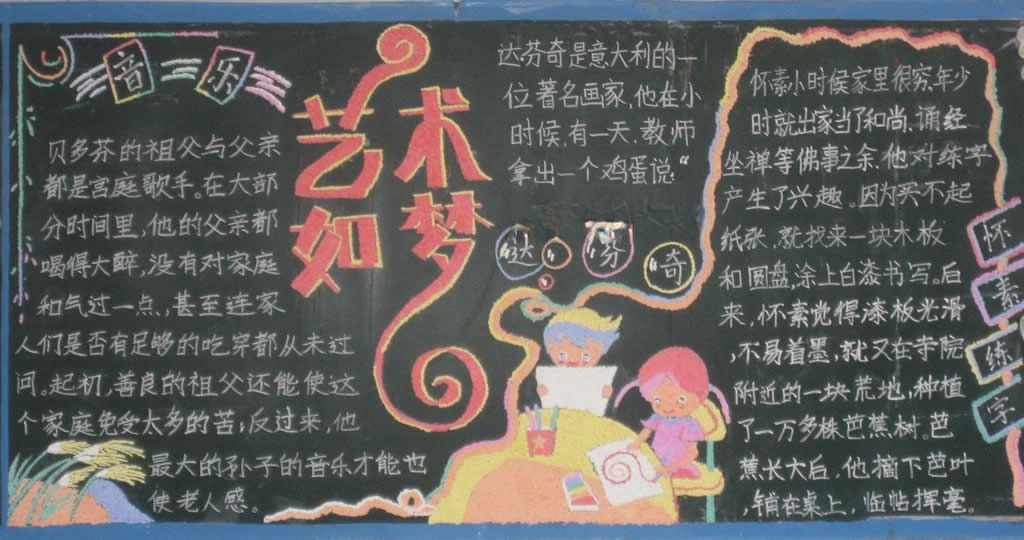 音乐
贝多芬的祖父与父亲
都是宫庭歌手。在大部
分时间里,他的父亲都
喝得大醉,没有对家庭
和气过一点,甚至连家
人们是否有足够的吃穿都从未过
问。起初,善良的祖父还能使这
个家庭免受太多的苦;反过来,他
最大的孙子的音乐才能也
使老人感。
艺术
如梦
达芬奇是意大利的一
位著名画家,他在小
时候,有一天,教师
拿出一个鸡蛋说:“
芬奇
怀素小时候家里很穷,年少
时就出家当了和尚,诵经
坐禅等佛事之余,他对练字
产生了兴趣。因为买不起
纸张,就找来一块木板
和圆盘,涂上白漆书写。后
来,怀素觉得漆板光滑
,不易着墨,就又在寺院
附近的一块荒地,种植
了一万多株芭蕉树。芭
蕉长大后,他摘下芭叶
,铺在桌上,临帖挥毫。
怀素练字